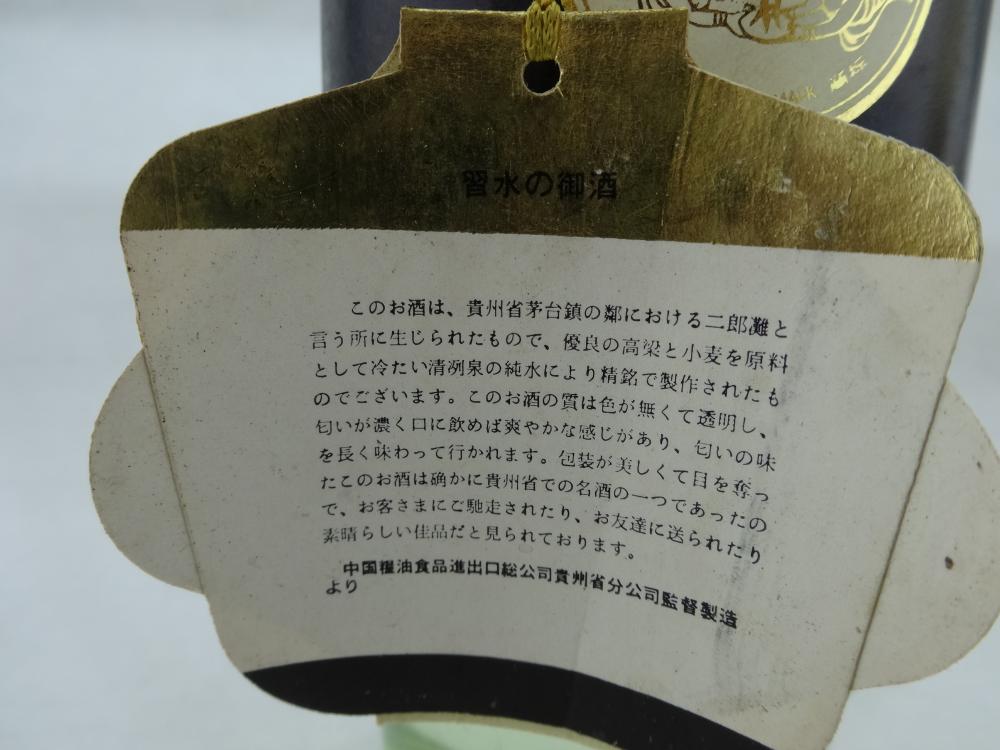 習水の御酒
このお酒は、貴州省茅台鎮の鄰における二郎灘と
言う所に生じられたもので、優良の高梁と小麦を原料
として冷たい清冽泉の純水により精銘で製作されたも
のでございます。このお酒の質は色が無くて透明し、
匂いが濃く口に飲めば爽やかな感じがあり、匂いの味
を長く味わって行かれます。包装が美しくて目を奪っ
たこのお酒は確かに貴州省での名酒の一つであったの
で、お客さまにご馳走されたり、お友達に送られたり
素晴らしい佳品だと見られております。
中国糧油食品進出口総公司貴州省分公司監督製造
より